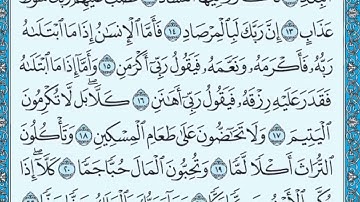 عَذَابٍ ١٣ إِنَّ رَبَّكَ لَبِٱلْمِرْصَادِ ١٤ فَأَمَّا ٱلْإِنسَٰنُ إِذَا مَا ٱبْتَلَىٰهُ
رَبُّهُۥ فَأَكْرَمَهُۥ وَنَعَّمَهُۥ فَيَقُولُ رَبِّىٓ أَكْرَمَنِ ١٥ وَأَمَّآ إِذَا مَا ٱبْتَلَىٰهُ
فَقَدَرَ عَلَيْهِ رِزْقَهُۥ فَيَقُولُ رَبِّىٓ أَهَٰنَنِ ١٦ كَلَّا ۖ بَل لَّا تُكْرِمُونَ
ٱلْيَتِيمَ ١٧ وَلَا تَحَٰٓضُّونَ عَلَىٰ طَعَامِ ٱلْمِسْكِينِ ١٨ وَتَأْكُلُونَ
ٱلتُّرَاثَ أَكْلًا لَّمًّا ١٩ وَتُحِبُّونَ ٱلْمَالَ حُبًّا جَمًّا ٢٠ كَلَّآ ۖ إِذَا